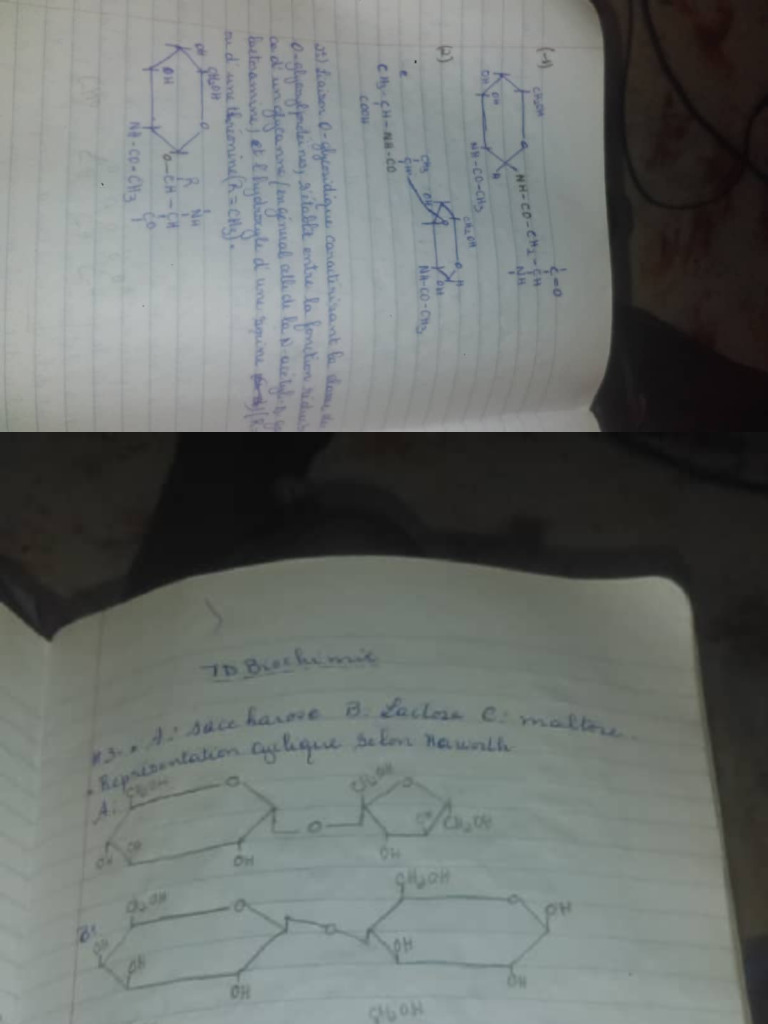 (1)
CH2OH
O
OH
OH
H
NH-CO-CH3
NH-CO-CH2-CH
C=O
NH
(2)
CH3-CH-NH-CO
COOH
CH3
CH
OH
CH2OH
O
H
OH
NH-CO-CH3
2) Liaison O-glycosidique caractérisant la classe de
O-glycoprotéines, s'établit entre la fonction
d'un glycanne (en général celle de la N-acétyl
lactosamine) et l'hydroxyle d'une serine
ou d'une thréonine (R=CH3).
CH2OH
OH
O
OH
R
NH
O-CH-CH
CO
NH-CO-CH3
TD Biochimie
A: saccharose B: Lactose C: maltose.
• Représentation cyclique selon Haworth
A:
CH2OH
O
OH
OH
OH
O
CH2OH
O
OH
OH
CH2OH
B:
CH2OH
O
OH
OH
OH
O
CH2OH
O
OH
OH
OH